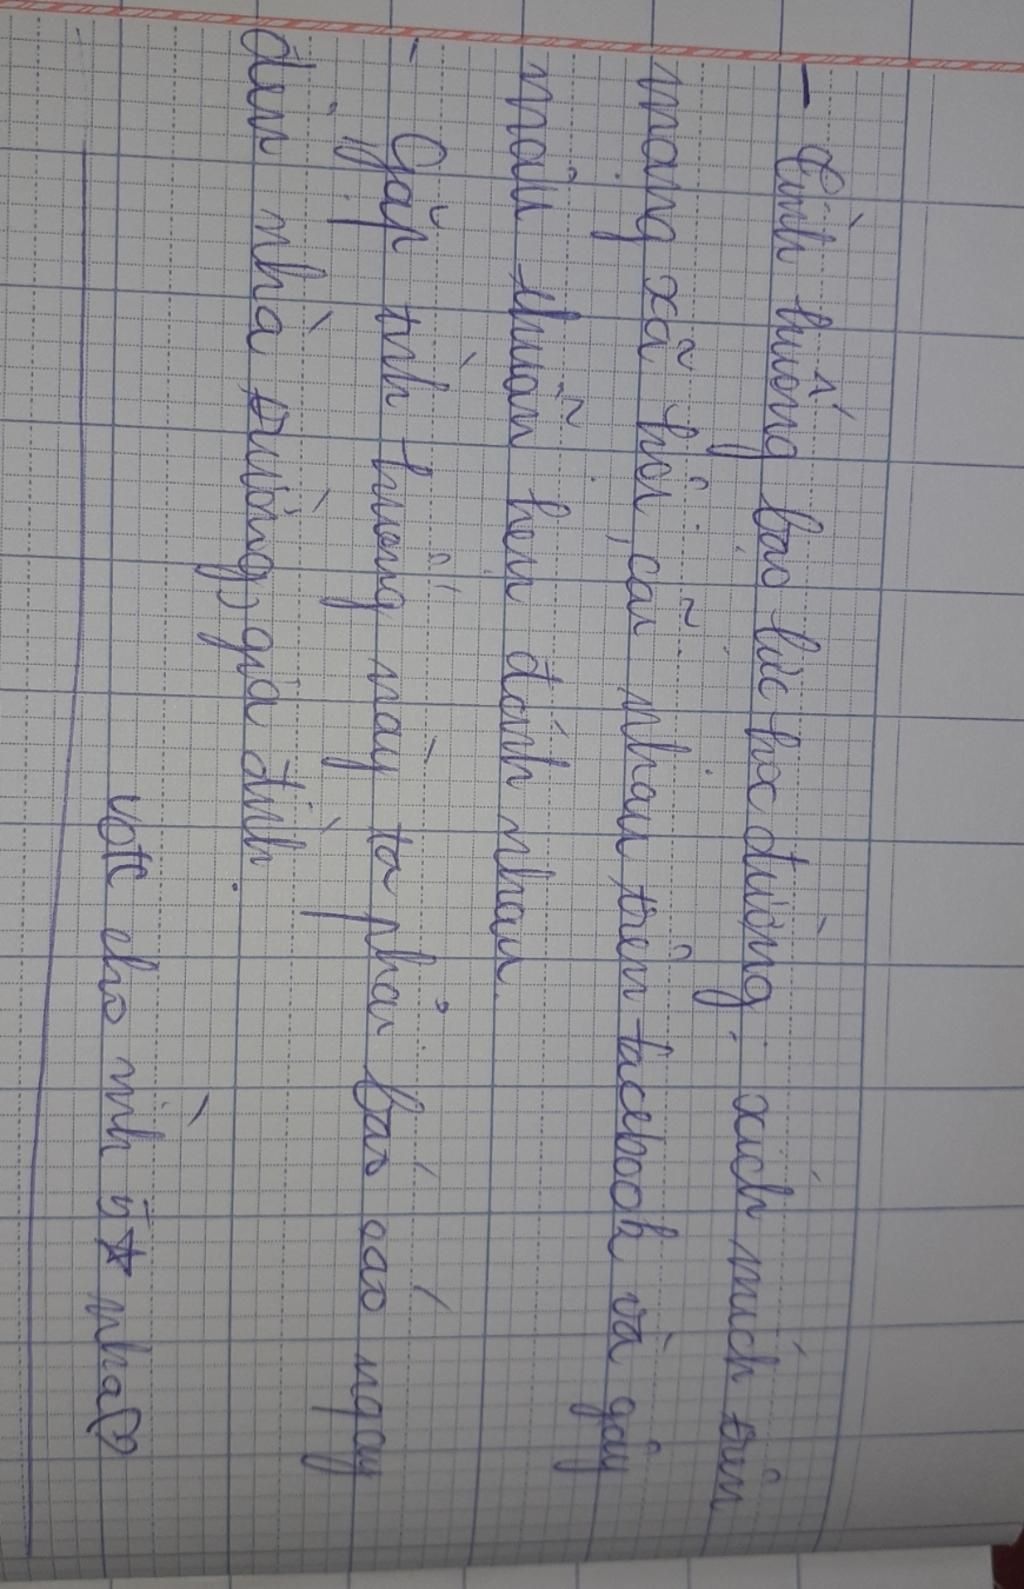 - Tình huống bạo lực học đường: xích mích trên
mạng xã hội, cãi nhau trên facebook và gây
mâu thuẫn hẹn đánh nhau.
- Gặp tình huống này ta phải báo cáo ngay
đến nhà trường, gia đình.
vote cho mình 5☆ nha♡